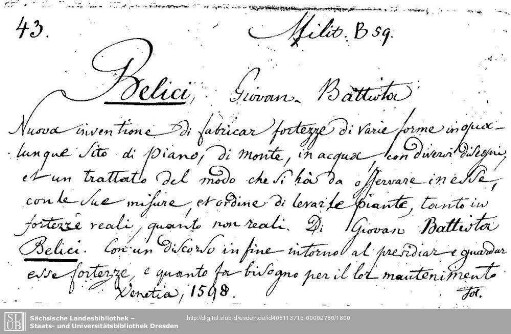 43. Milit. B 59.
Belici, Giovan Battista
Nuova inventione di fabricar fortezze di varie forme in qua-
lunque sito di piano, di monte, in acqua con diversi disegni,
et un trattato del modo che si hà da osservare in esse,
con le sue misure, et ordine di levar le piante, tanto in
fortezze reali, quanto non reali. Di Giovan Battista
Belici. Con un discorso in fine intorno al presidiar e guardar
esse fortezze, e quanto fa bisogno per il lor mantenimento
Venetia, 1598. fol.
Sächsische Landesbibliothek –
Staats- und Universitätsbibliothek Dresden